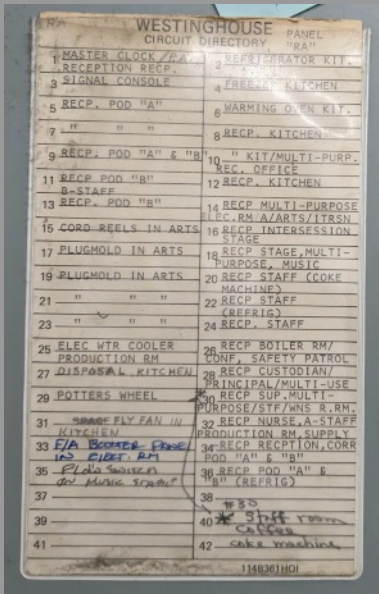 RA
WESTINGHOUSE
CIRCUIT DIRECTORY
PANEL
"RA"
1 MASTER CLOCK/P.A.
RECEPTION RECP.
3 SIGNAL CONSOLE
5 RECP. POD "A"
7 " " "
9 RECP. POD "A" & "B"
11 RECP POD "B"
B-STAFF
13 RECP. POD "B"
15 CORD REELS IN ARTS
17 PLUGMOLD IN ARTS
19 PLUGMOLD IN ARTS
21 " " "
23 " " "
25 ELEC WTR COOLER
PRODUCTION RM
27 DISPOSAL KITCHEN
29 POTTERS WHEEL
31 FLY FAN IN
KITCHEN
33 F/A BOOSTER PANEL
IN ELECT. RM
35
ON MUSIC
37
39
41
2 REFRIGERATOR KIT.
4 FREEZER KITCHEN
6 WARMING OVEN KIT.
8 RECP. KITCHEN
10 " KIT/MULTI-PURP.
REC. OFFICE
12 RECP. KITCHEN
14 RECP MULTI-PURPOSE
ELEC.RM A/ARTS/ITRSN
16 RECP INTERSESSION
STAGE
18 RECP STAGE,MULTI-
PURPOSE, MUSIC
20 RECP STAFF (COKE
MACHINE)
22 RECP STAFF
(REFRIG)
24 RECP. STAFF
26 RECP BOILER RM/
CONF, SAFETY PATROL
28 RECP CUSTODIAN/
PRINCIPAL/MULTI-USE
30 RECP SUP.MULTI-
PURPOSE/STF/WNS R.RM.
32 RECP NURSE,A-STAFF
PRODUCTION RM,SUPPLY
34 RECP RECPTION,CORR
POD "A" & "B"
36 RECP POD "A" &
"B" (REFRIG)
38 #30
40 * Staff room
Coffee
42 coke machine
1148361H01